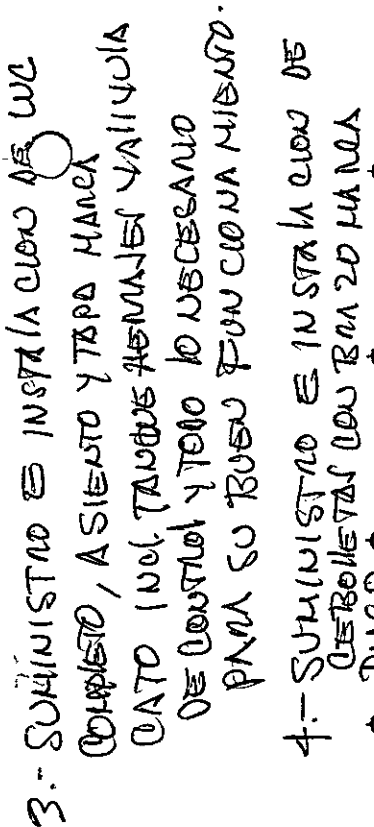 3.- SUMINISTRO E INSTALACION DE WC
COMPLETO, ASIENTO Y TAPA MARCA
CATO INCL. TANQUE HERRAJES VALVULA
DE CONTROL Y TODO LO NECESARIO
PARA SU BUEN FUNCIONAMIENTO.
4.- SUMINISTRO E INSTALACION DE
CEBOLLETAS CON BRAZO MARCA